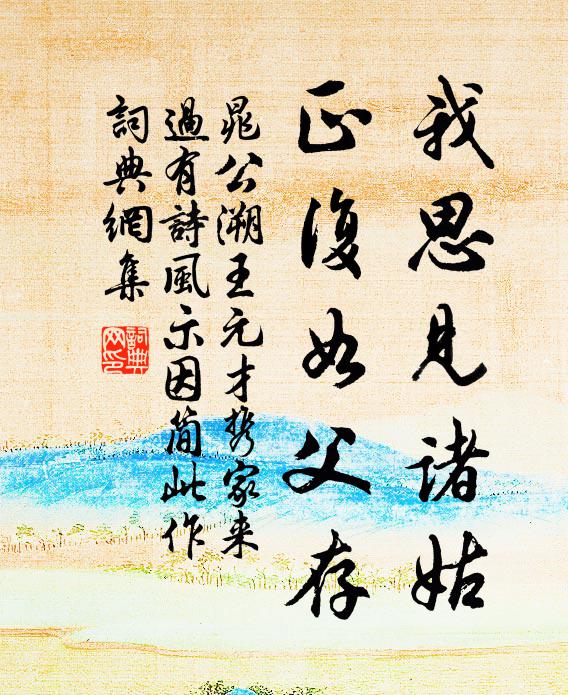 我思見諸姑
正復如父存
晁公溯王元才携家来
過有詩風示因簡此作
詞典網集
詞典网印